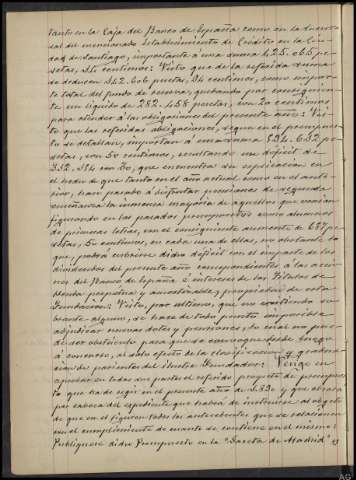 tanto en la Caja del Banco de España como en la Sucursal
del mencionado Establecimiento de Crédito en la Ciudad
de Santiago, importante á una suma 625.065 pesetas,
34 céntimos: Visto que de la referida suma
se deducen 342.606 pesetas, 94 céntimos, como importe
total del fondo de reserva, quedando por consiguiente
un líquido de 282.458 pesetas, con 20 céntimos
para atender á las obligaciones del presente año: Visto
que las referidas obligaciones, segun en el presupuesto
se detallan, importan á una suma
pesetas, con 50 céntimos, resultando un déficit de
que encuentra su explicacion en
el hecho de que tanto en el año actual como en el anterior,
han pasado á disfrutar pensiones de segunda
enseñanza la inmensa mayoría de aquellos que venian
figurando en los pasados presupuestos como alumnos
de primeras letras, con el consiguiente aumento de
pesetas, 50 céntimos, en cada una de ellas, no obstante lo
que, podrá cubrirse dicho déficit con el importe de los
dividendos del presente año correspondientes á las acciones
del Banco de España, é intereses de los Títulos de
Deuda perpétua y amortizable, propiedad de esta
Fundacion: Visto, por último, que no existiendo sobrante
alguno, se hace de todo punto imposible
adjudicar nuevas dotes y pensiones, lo cual no puede
ser obstáculo para que se convoque desde luego
á concurso, al solo efecto de la clasificacion y graduacion
de parientes del ilustre Fundador: Vengo en
aprobar en todas sus partes el referido proyecto de presupuesto
que ha de regir en el presente año de
por cabeza del expediente que habrá de instruirse al objeto
de que en él figuren todos los antecedentes que se relacionen
con el cumplimiento de cuanto se contiene en el mismo:
Publíquese dicho Presupuesto en la "Gaceta de Madrid" y
AG